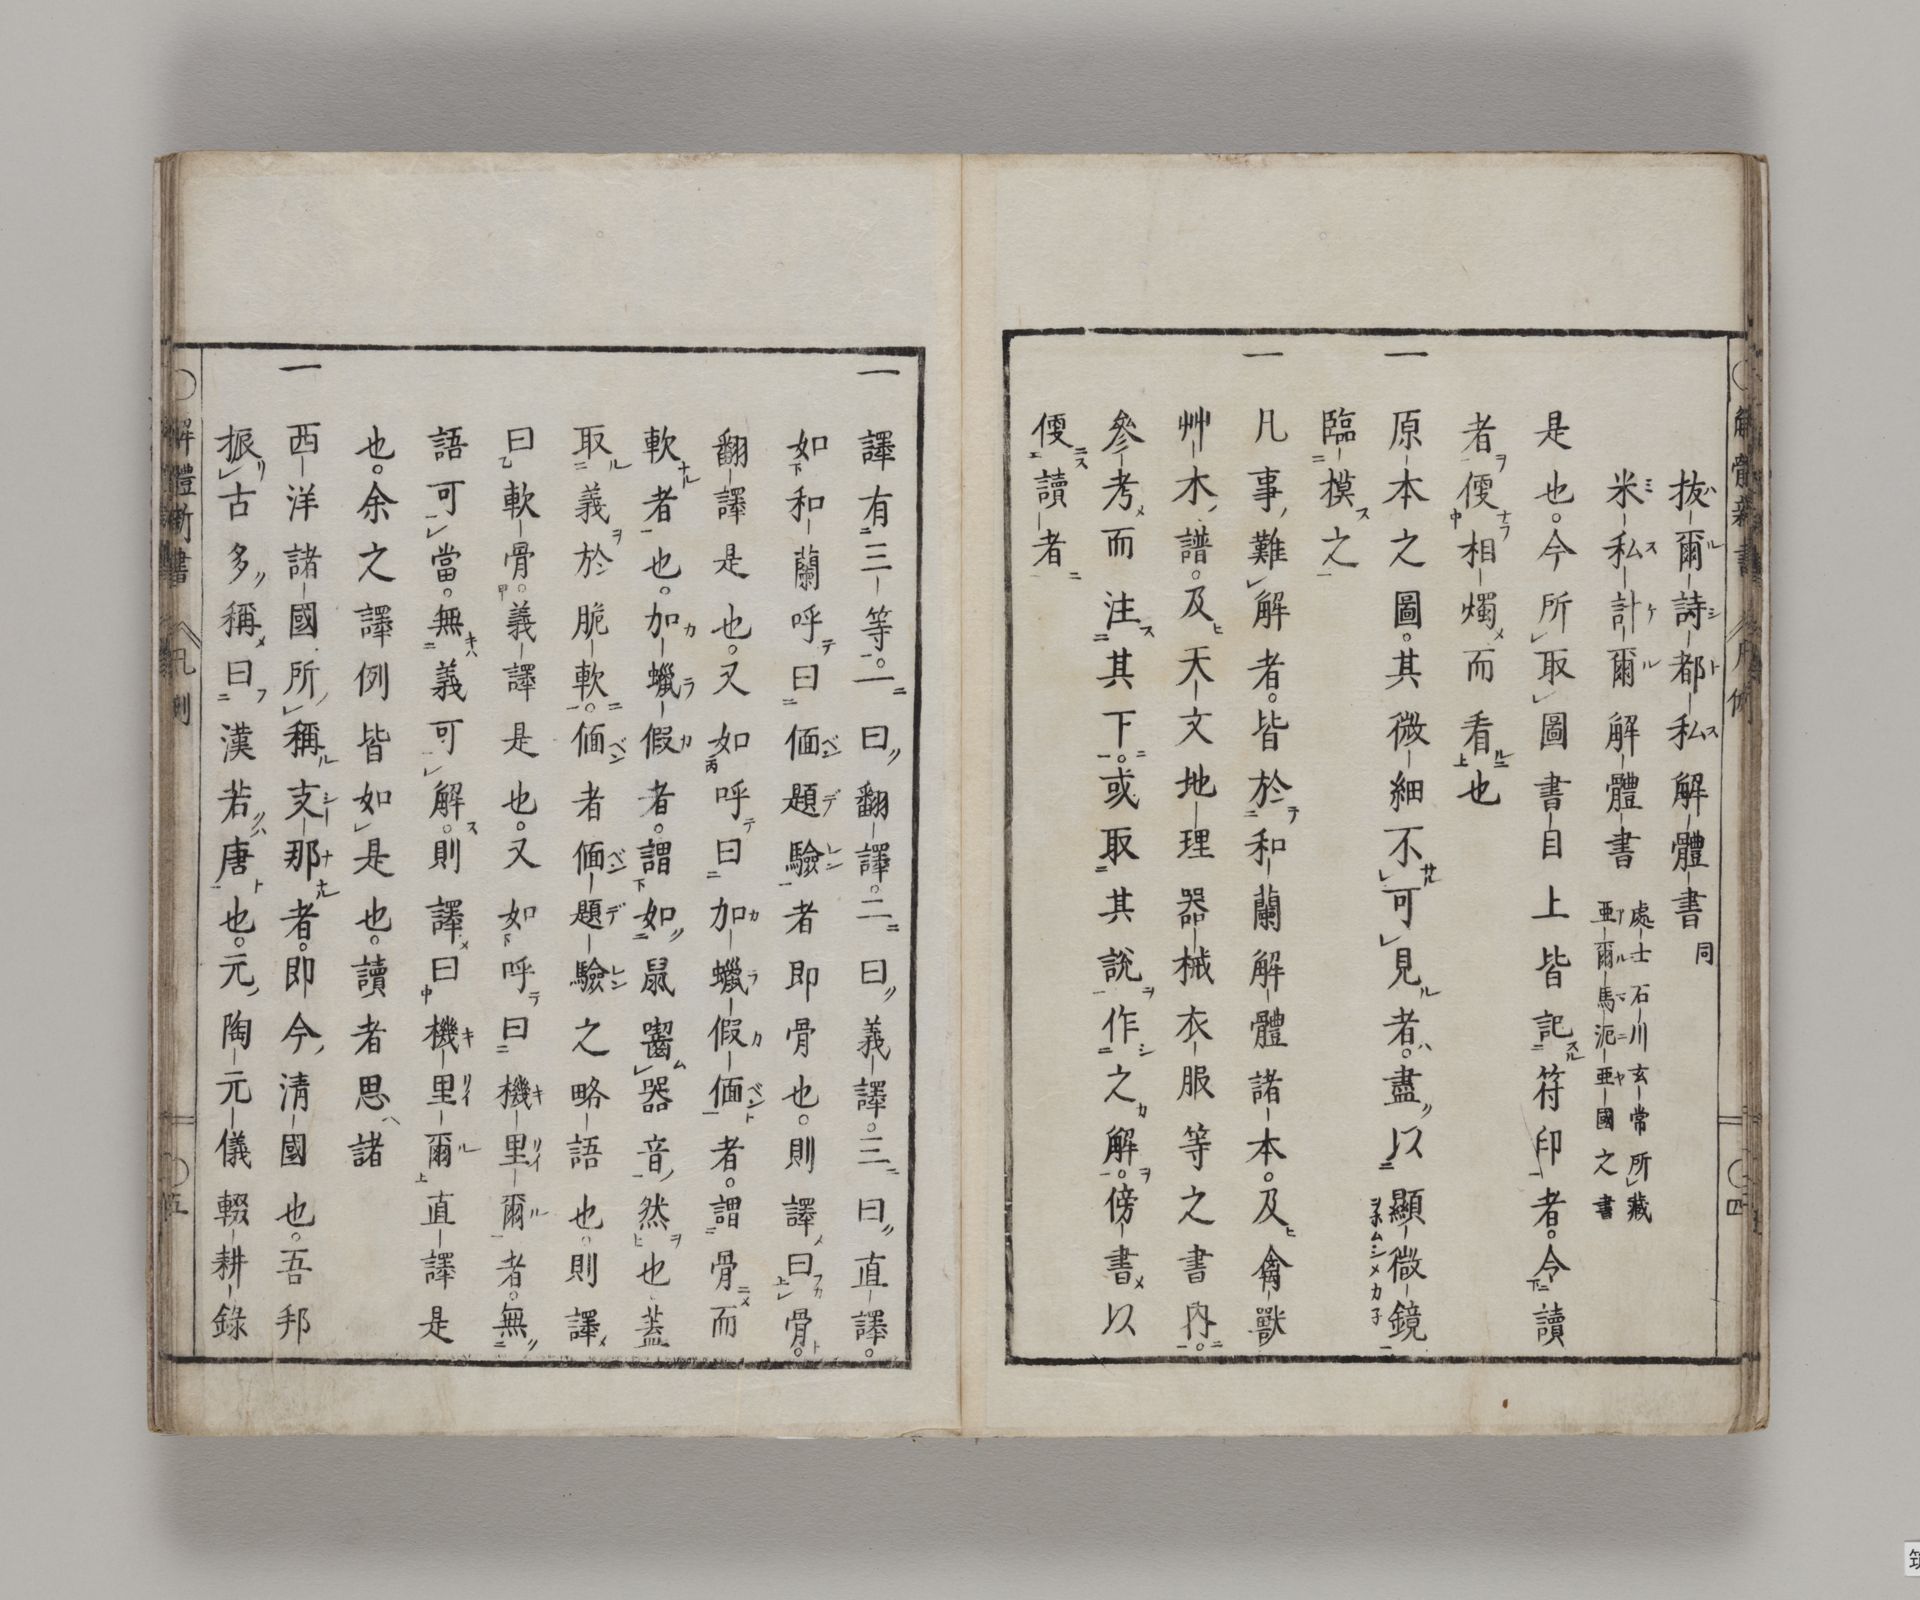 解體新書 凡例 四
拔爾詩都私解體書同
米私計爾解體書 處士石川玄常所藏
亜爾馬泥亜國之書
是也。今所取圖書目上皆記符印者。令讀
者便相燭而看也
一原本之圖。其微細不可見者。盡以顯微鏡
臨模之
一凡事難解者。皆於和蘭解體諸本。及禽獸
艸木譜。及天文地理器械衣服等之書內。
參考而注其下。或取其說作之解。傍書以
便讀者
一譯有三等。一曰翻譯。二曰義譯。三曰直譯。
如和蘭呼曰偭題驗者即骨也。則譯曰骨。
翻譯是也。又如呼曰加蠟假偭者。謂骨而
軟者也。加蠟假者。謂如鼠囓器音然也蓋
取義於脆軟。偭者偭題驗之略語也。則譯
曰軟骨。義譯是也。又如呼曰機里爾者。無
語可當。無義可解。則譯曰機里爾直譯是
也。余之譯例皆如是也。讀者思諸
一西洋諸國所稱支那者。即今清國也。吾邦
振古多稱曰漢若唐也。元陶元儀輟耕錄
解體新書 凡例 五